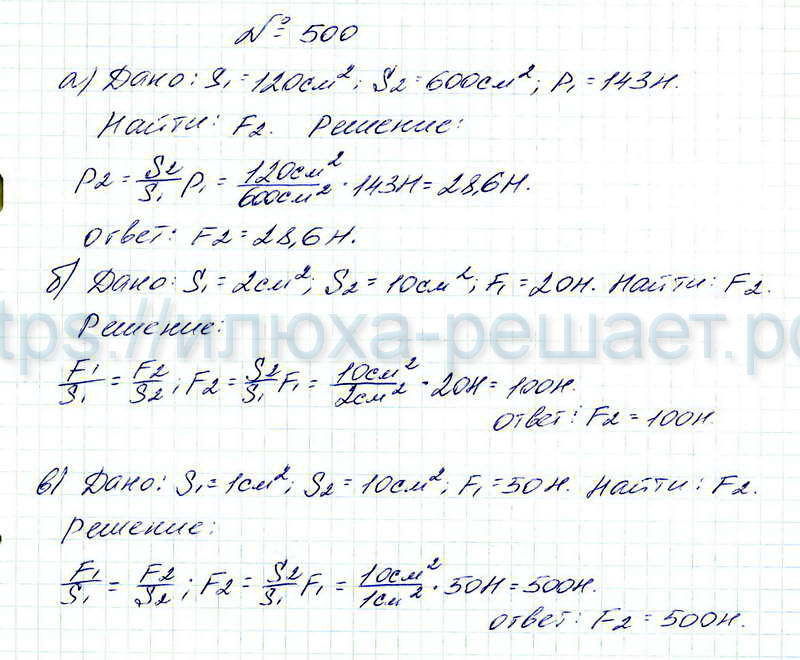 № 500
а) Дано: S₁=120см²; S₂=600см²; P₁=143Н.
Найти: F₂. Решение:
P₂ = S₂/S₁ P₁ = 120см²/600см² · 143Н = 28,6Н.
Ответ: F₂=28,6Н.
б) Дано: S₁=2см²; S₂=10см²; F₁=20Н. Найти: F₂.
ttps://илюха-решает.рф
Решение:
F₁/S₁ = F₂/S₂; F₂ = S₂/S₁ F₁ = 10см²/2см² · 20Н = 100Н.
Ответ: F₂ = 100Н
в) Дано: S₁=1см²; S₂=10см²; F₁=50Н. Найти: F₂.
Решение:
F₁/S₁ = F₂/S₂; F₂ = S₂/S₁ F₁ = 10см²/1см² · 50Н = 500Н.
Ответ: F₂ = 500Н.